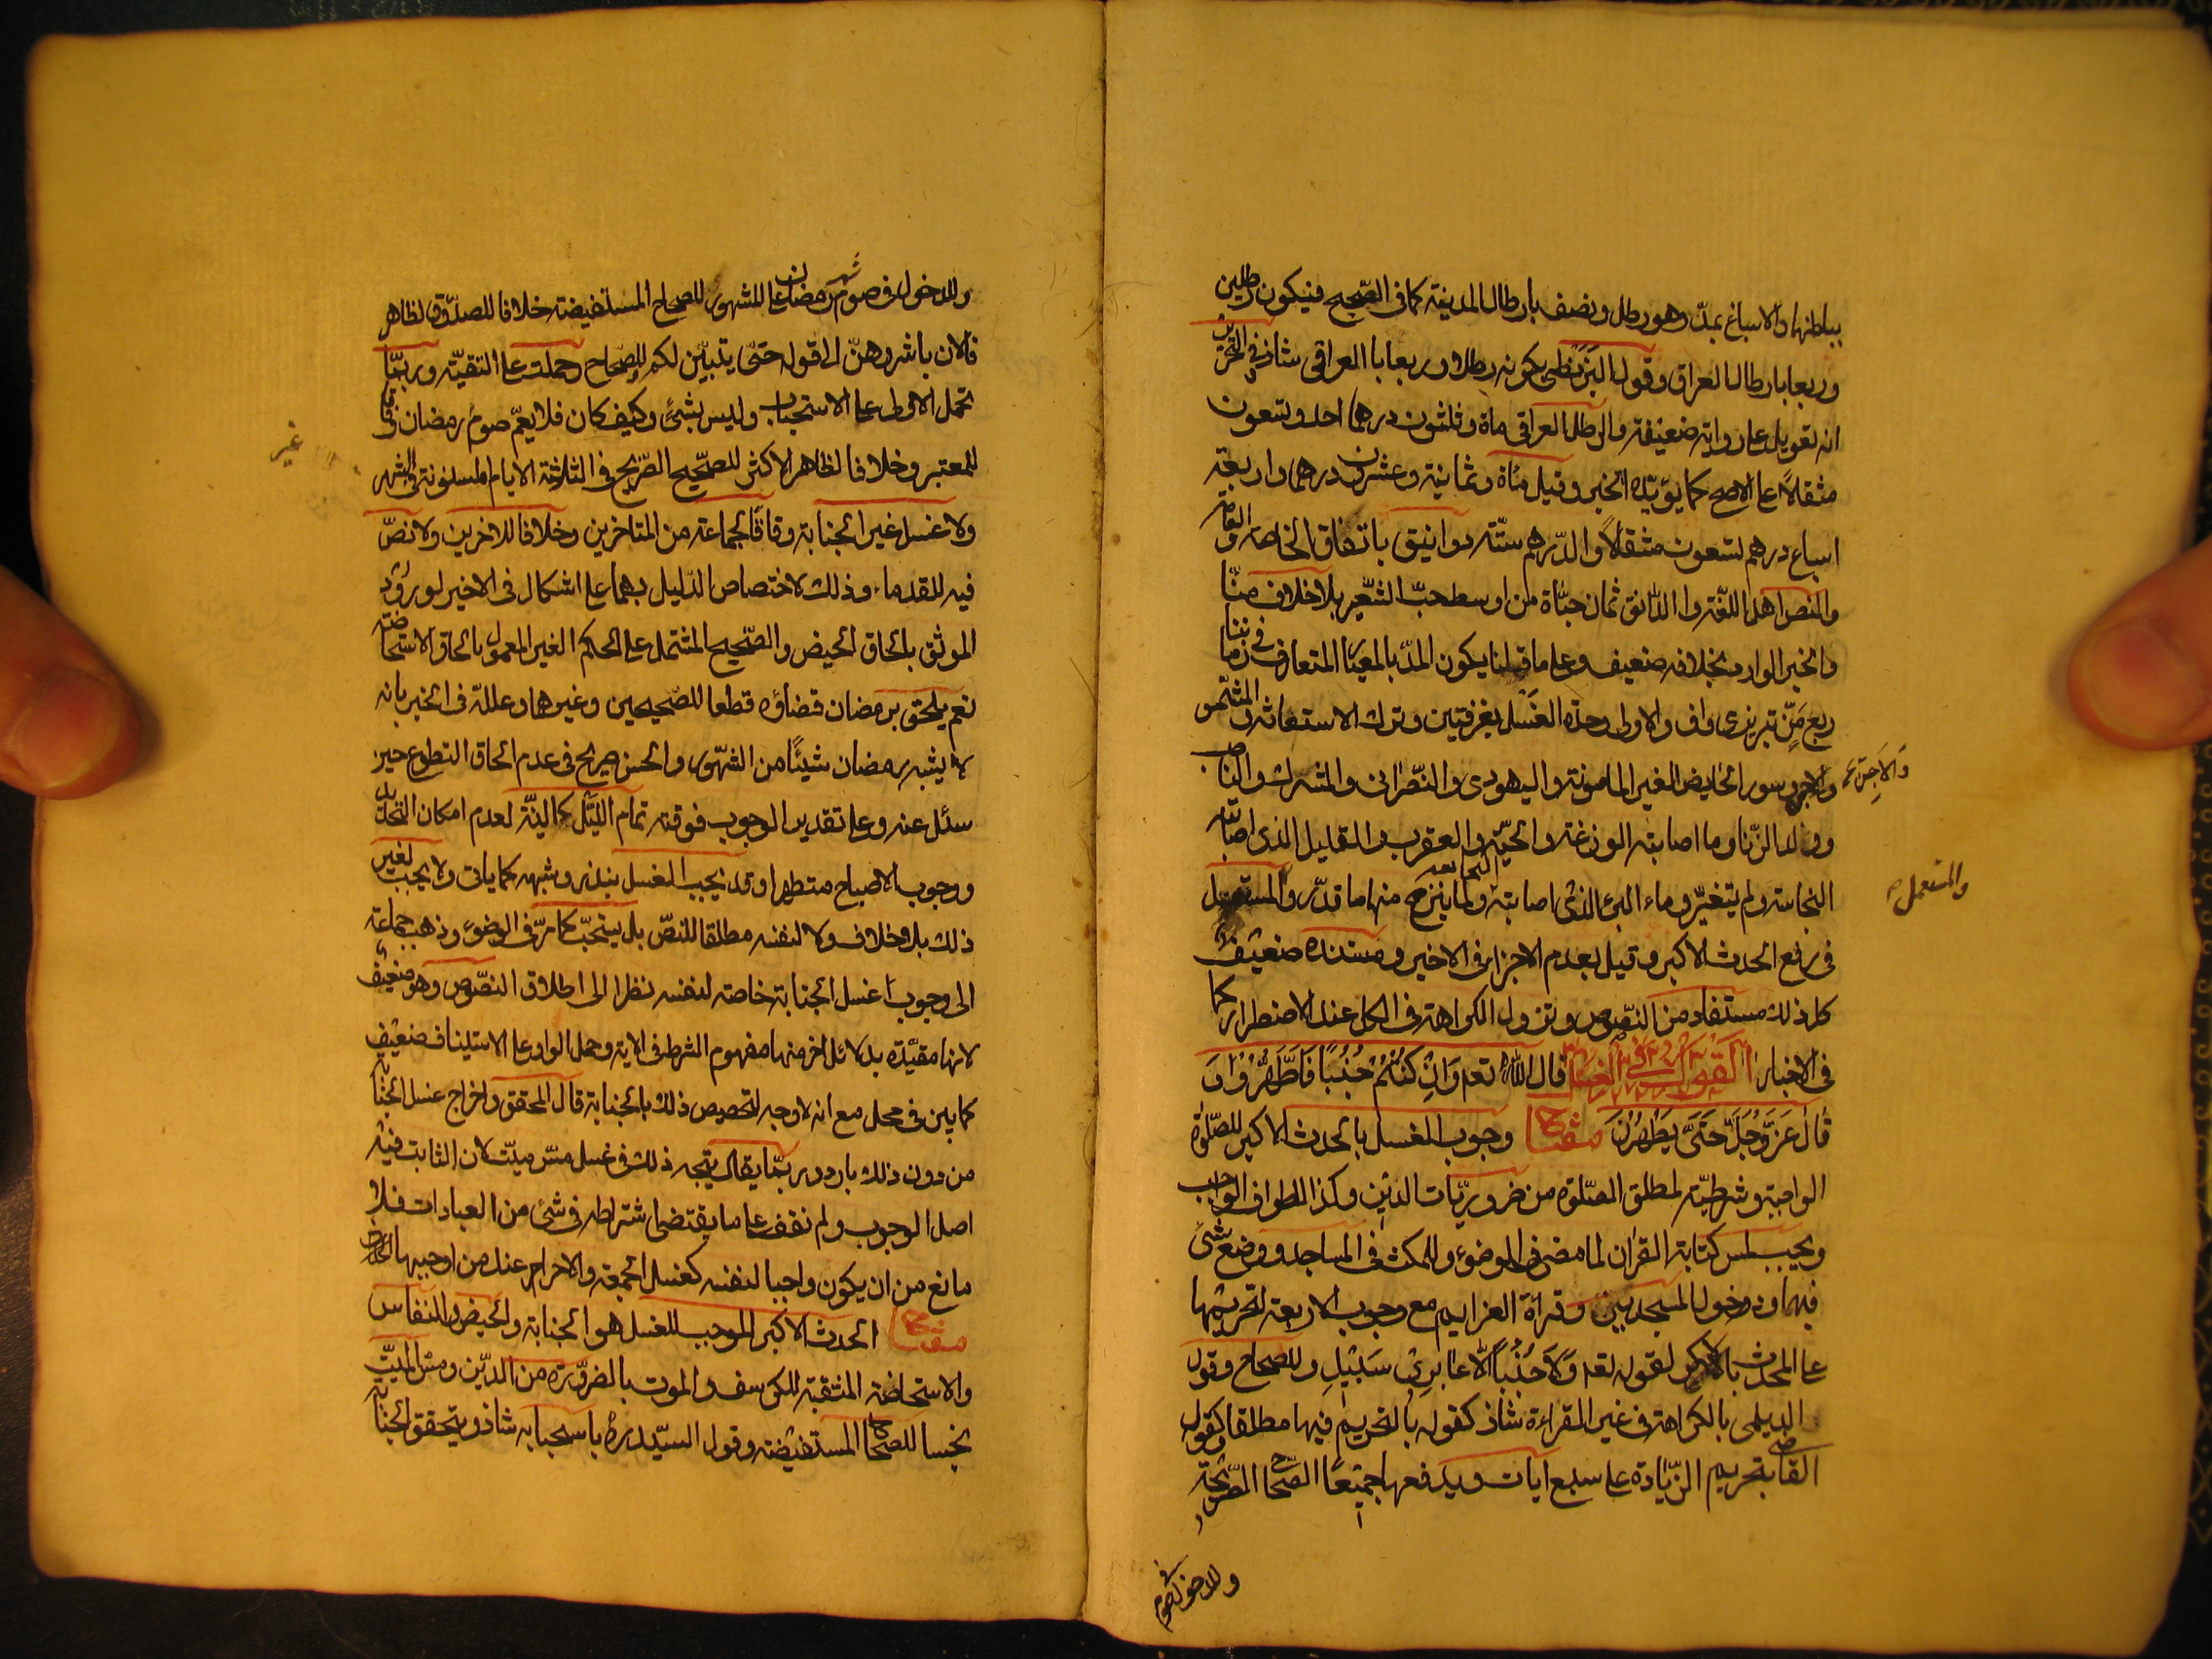 بباطنها والاسباغ بمدّ وهو رطل ونصف بارطال المدينة كما فى الصّحيح فيكون رطلين
وربعا بارطال العراق وقول البَزَنطى بكونه رطلا وربعا بالعراقى شاذ فى التحرير
انه تعويل على رواية ضعيفة والرطل العراقى ماة وثلثون درهما احد وتسعون
مثقلاً على الاصح كما يؤيّده الخبر وقيل مأة وثمانية وعشرون درهما واربعة
اسباع درهم تسعون مثقلاً والدّرهم ستّة دوانيق باتفاق الخاصه والعامّة
والنصّ اهل اللّغة والدّانق ثمان حبّاة من اوسط حبّ الشّعير بلا خلاف منّا
والخبر الوارد بخلافه ضعيف وعلى ما قلنا يكون المدّ بالمعيّا المتعارف فى زماننا
ربع مَنّ تبريزى واف والاولى وحدة الغسل بغرفتين وترك الاستعانة والمشمّس
والاجن وسور الحايض الغير المامونة واليهودى والنصّرانى والمشرك والناصب
وولد الزّنا وما اصابته الوزغة والحيّة والعقرب والقليل الذى اصابته
النجاسة ولم يتغيّر وماء البئر الذى اصابته النجاسة ولمّا ينزح منها ما قدّر والمستعمل
فى رفع الحدث الاكبر وقيل بعدم الاجزاء فى الاخير ومستنده ضعيف
كل ذلك مستفاد من النصّوص وتزول الكراهة فى الكل عند الاضطرار كما
فى الاخبار القول فى الغسل قال اللهُ تعه وَاِنْ كنْتُمْ جُنُبًا فَاطَّهَّرُوْا وَ
قٰال عَزَّوَجَلَّ حَتَّى يَطْهُرْنَ مفتاح وجوب الغسل بالحدث الاكبر للصّلوة
الواجبة وشرطيّة لمطلق الصّلوة من ضروريّات الدين وكذا الطواف الواجب
ويجب لمس كتابة القران لما مضى فى الوضوء وللمكث فى المساجد ووضع شئ
فيها ودخول المسجدين وقراة العزايم مع وجوب الاربعة لتحريمها
على المحدث بالاكبر لقوله تعه وَلاَ جُنُباً اِلّا عَابِرِىْ سَبِيْلِ وللصحاح وقول
الديلمى بالكراهة فى غير القراءة شاذ كقوله بالتحريم فيها مطلقا وكقول
القاضى بتحريم الزّيادة على سبع ايات ويدفعها جميعًا الصّحاح الصّريحة
والاجن
والمستعمل
وللدخول فى صوم
وللدخول فى صوم شهر رمضان على المشهور للصحاح المستفيضة خلافا للصدّوق لظاهر
فالان باشروهنّ الى قوله حتّى يتبيّن لكم وللصّحاح وحملت على التقيّة وربمّا
تحمل الاولى على الاستحباب وليس بشئ وكيف كان فلا يعمّ صوم رمضان وفاقا
للمعتبر وخلافا لظاهر الاكثر للصحّيح الصّريح فى الثلاثة الايام المسنونة فى الشهر
ولا غسل غير الجنابة وفاقًا لجماعة من المتاخرين وخلافا للاخرين ولا نصّ
فيه للقدماء وذلك لاختصاص الدّليل بهما على اشكال فى الاخير لورود
الموثق بالحاق الحيض والصّحيح المشتمل على الحكم الغير المعمول بالحاق الاستحاضة
نعم يلحق برمضان قضاؤه قطعا للصحيحين وغيرها وعللّه فى الخبر بانه
لا يشبه رمضان شيئًا من الشّهور والحسن صريح فى عدم الحاق التطوع حين
سئل عنه وعلى تقدير الوجوب فوقته تمام اللّيَل كالنيّة لعدم امكان التحديد
ووجوب الاصباح متطهرا وقد يجب الغسل بنذر وشبهه كما ياتى ولا يجب لغير
ذلك بلا خلاف ولا لنفسه مطلقا للنصّ بل يستحبّ كما مرّ فى الوضوء وذهب جماعة
الى وجوب غسل الجنابة خاصة لنفسه نظرا الى اطلاق النصّوص وهو ضعيف
لانها مقيّدة بدلائل اخر منها مفهوم الشرط فى الاية وحمل الواو على الاستيناف ضعيف
كما بين فى محل مع انه لا وجه لتخصيص ذلك بالجنابة قال المحقق واخراج غسل الجنابة
من دون ذلك بارد وربمّا يقال يتجه ذلك فى غسل مسّ ميّت لان الثابت فيه
اصل الوجوب ولم نقف على ما يقتضى اشتراطه فى شئ من العبادات فلا
مانع من ان يكون واجبا لنفسه كغسل الجمعة والاحرام عند من اوجبها
مفتاح الحدث الاكبر الموجب للغسل هو الجنابة والحيض والنفاس
والاستحاضة المثقبة للكرسف والموت بالضّرورة من الدّين ومسّ الميّت
نجسا للصحاح المستفيضة وقول السيّد ره باستحبابه شاذ ويتحقق الجنابة
غير